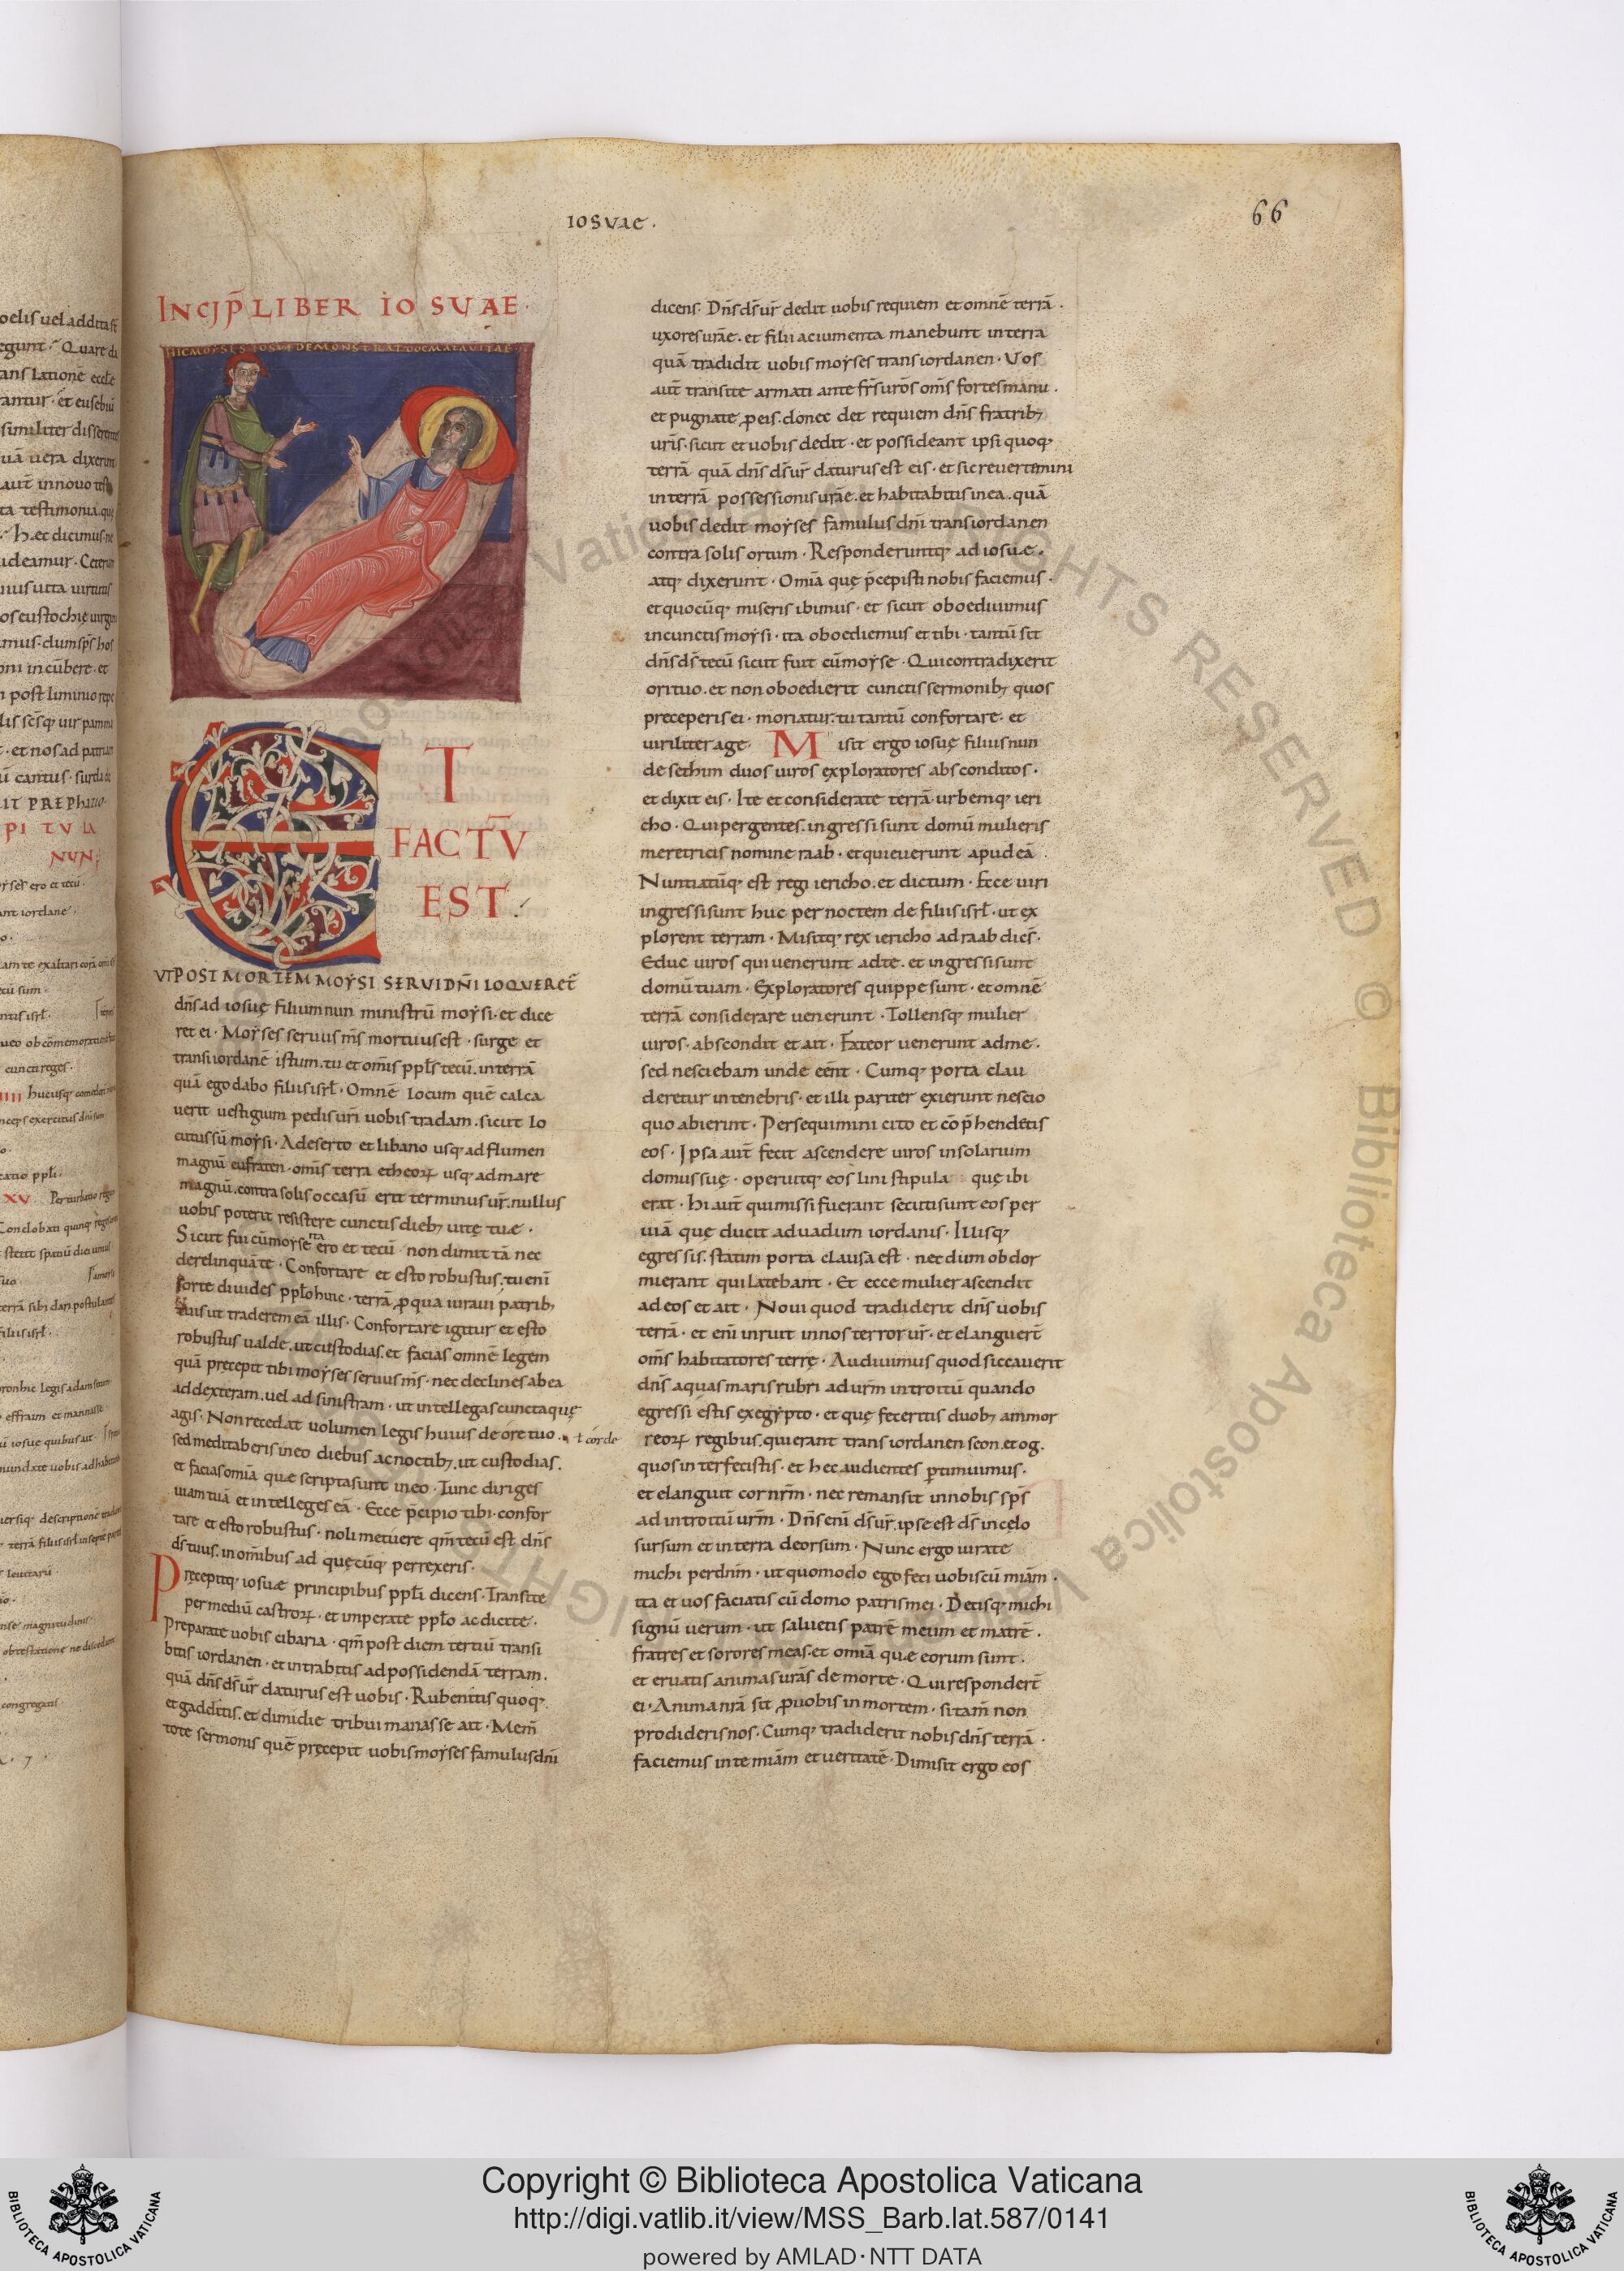 IOSVAE.
66
INCIP̄ LIBER IOSVAE.
HIC MOYSES IOSVE DEMONSTRAT DOGMATA VITAE
ET
FACTV̄
EST.
VT POST MORTEM MOYSI SERVI DN̄I LOQVERET̄
dn̄s ad iosuę filium nun ministrū moysi. et dice
ret ei. Moyses seruus m̄s mortuus est. surge et
transi iordanē istum. tu et om̄s ppl̄s tecū. in terrā
quā ego dabo filiis isrl̄. Omnē locum quē calca
uerit uestigium pedis uri̅ uobis tradam. sicut lo
cutus sū moysi. A deserto et libano usq; ad flumen
magnū eufraten. omīs terra etheoꝝ usq; ad mare
magnū. contra solis occasū erit terminus ur̄. nullus
uobis poterit resistere cunctis dieb; uitę tuæ.
Sicut fui cū moyse ita ero et tecū. non dimittā nec
derelinquā te. Confortare et esto robustus. tu enī
sorte diuides ppl̄o huic. terrā ꝓ qua iuraui patrib;
suis ut traderem eā illis. Confortare igitur et esto
robustus ualde. ut custodias. et facias omnē legem
quā pręcepit tibi moyses seruus m̄s. nec declines ab ea
ad dexteram. uel ad sinistram. ut intellegas cuncta quę
agis. Non recedat uolumen legis huius de ore tuo. ł corde
sed meditaberis in eo diebus ac noctib;. ut custodias.
et facias om̄ia quæ scripta sunt in eo. Tunc diriges
uiam tuā et intelleges eā. Ecce p̄cipio tibi. confor
tare et esto robustus. noli metuere qm̄ tecū est dn̄s
ds̄ tuus. in om̄ibus ad quęcūq; perrexeris.
Pręcepitq; iosuæ principibus ppl̄i dicens. Transite
per mediū castroꝝ. et imperate ppl̄o ac dicite.
Preparate uobis cibaria. qm̄ post diem tertiū transi
bitis iordanen. et intrabitis ad possidendā terram.
quā dn̄s ds̄ ur̄ daturus est uobis. Rubenitis quoq;
et gadditis. et dimidie tribui manasse ait. Mem̄
tote sermonis quē pręcepit uobis moyses famulus dn̄i
dicens. Dn̄s ds̄ ur̄ dedit uobis requiem et omnē terrā.
uxores urāe. et filii ac iumenta manebunt in terra
quā tradidit uobis moyses trans iordanen. Vos
aut̄ transite armati ante fr̄s urōs om̄s fortes manu.
et pugnate ꝓ eis. donec det requiem dn̄s fratrib;
uris̄. sicut et uobis dedit. et possideant ipsi quoq;
terrā quā dn̄s ds̄ ur̄ daturus est eis. et sic reuertemini
in terrā possessionis urāe. et habitabitis in ea. quā
uobis dedit moyses famulus dn̄i trans iordanen
contra solis ortum. Responderuntq; ad iosuæ.
atq; dixerunt. Om̄ia quę p̄cepisti nobis faciemus.
et quocūq; miseris ibimus. et sicut oboediuimus
in cunctis moysi. ita oboediemus et tibi. tantū sit
dn̄s ds̄ tecū sicut fuit cū moyse. Qui contradixerit
ori tuo. et non oboedierit cunctis sermonib; quos
preceperis ei. moriatur. tu tantū confortare. et
uiriliter age. Misit ergo iosuę filius nun
de sethim duos uiros exploratores absconditos.
et dixit eis. Ite et considerate terrā. urbemq; ieri
cho. Qui pergentes. ingressi sunt domū mulieris
meretricis nomine raab. et quieuerunt apud eā.
Nuntiatūq; est regi iericho. et dictum. Ecce uiri
ingressi sunt huc per noctem de filiis isrl̄. ut ex
plorent terram. Misitq; rex iericho ad raab dices̄.
Educ uiros qui uenerunt ad te. et ingressi sunt
domū tuam. Exploratores quippe sunt. et omnē
terrā considerare uenerunt. Tollensq; mulier
uiros. abscondit et ait. Fateor uenerunt ad me.
sed nesciebam unde eēnt. Cumq; porta clau
deretur in tenebris. et illi pariter exierunt nescio
quo abierint. Persequimini cito et cōp̄hendetis
eos. Ipsa aut̄ fecit ascendere uiros in solarium
domus suę. operuitq; eos lini stipula quę ibi
erat. Hi aut̄ qui missi fuerant secuti sunt eos per
uiā quę ducit ad uadum iordanis. Illisq;
egressis. statim porta clausa est. nec dum obdor
mierant qui latebant. Et ecce mulier ascendit
ad eos et ait. Noui quod tradiderit dn̄s uobis
terrā. et enī inruit in nos terror ur̄. et elanguert̄
om̄s habitatores terrę. Audiuimus quod siccauerit
dn̄s aquas maris rubri ad urm̄ introitū quando
egressi estis ex egypto. et quę feceritis duob; ammor
reoꝝ regibus. qui erant trans iordanen seon. et og.
quos interfecistis. et hec audientes ꝑtimuimus.
et elanguit cor nrm̄. nec remansit in nobis sps̄
ad introitū urm̄. Dn̄s enī ds̄ ur̄. ipse est ds̄ in cęlo
sursum et in terra deorsum. Nunc ergo iurate
michi per dnm̄. ut quomodo ego feci uobiscū miām.
ita et uos faciatis cū domo patris mei. Detisq; michi
signū uerum. ut saluetis patrē meum et matrē.
fratres et sorores meas. et om̄ia quæ eorum sunt.
et eruatis animas urās de morte. Qui respondert̄
ei. Anima nrā sit ꝓ uobis in mortem. si tam̄ non
prodideris nos. Cumq; tradiderit nobis dn̄s terrā.
faciemus in te miām et ueritatē. Dimisit ergo eos
Copyright © Biblioteca Apostolica Vaticana
http://digi.vatlib.it/view/MSS_Barb.lat.587/0141
powered by AMLAD·NTT DATA
BIBLIOTECA APOSTOLICA VATICANA
BIBLIOTECA APOSTOLICA VATICANA